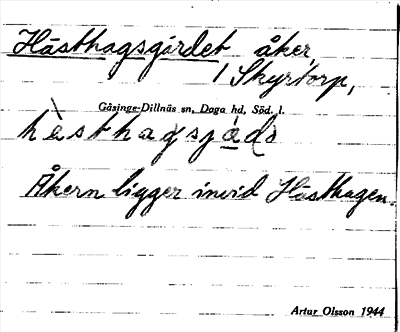 Hästhagsgärdet, åker,
/ Skyrtorp,
Gåsinge-Dillnäs sn, Daga hd, Söd. l.
Åkern ligger invid Hästhagen.
Artur Olsson 1944